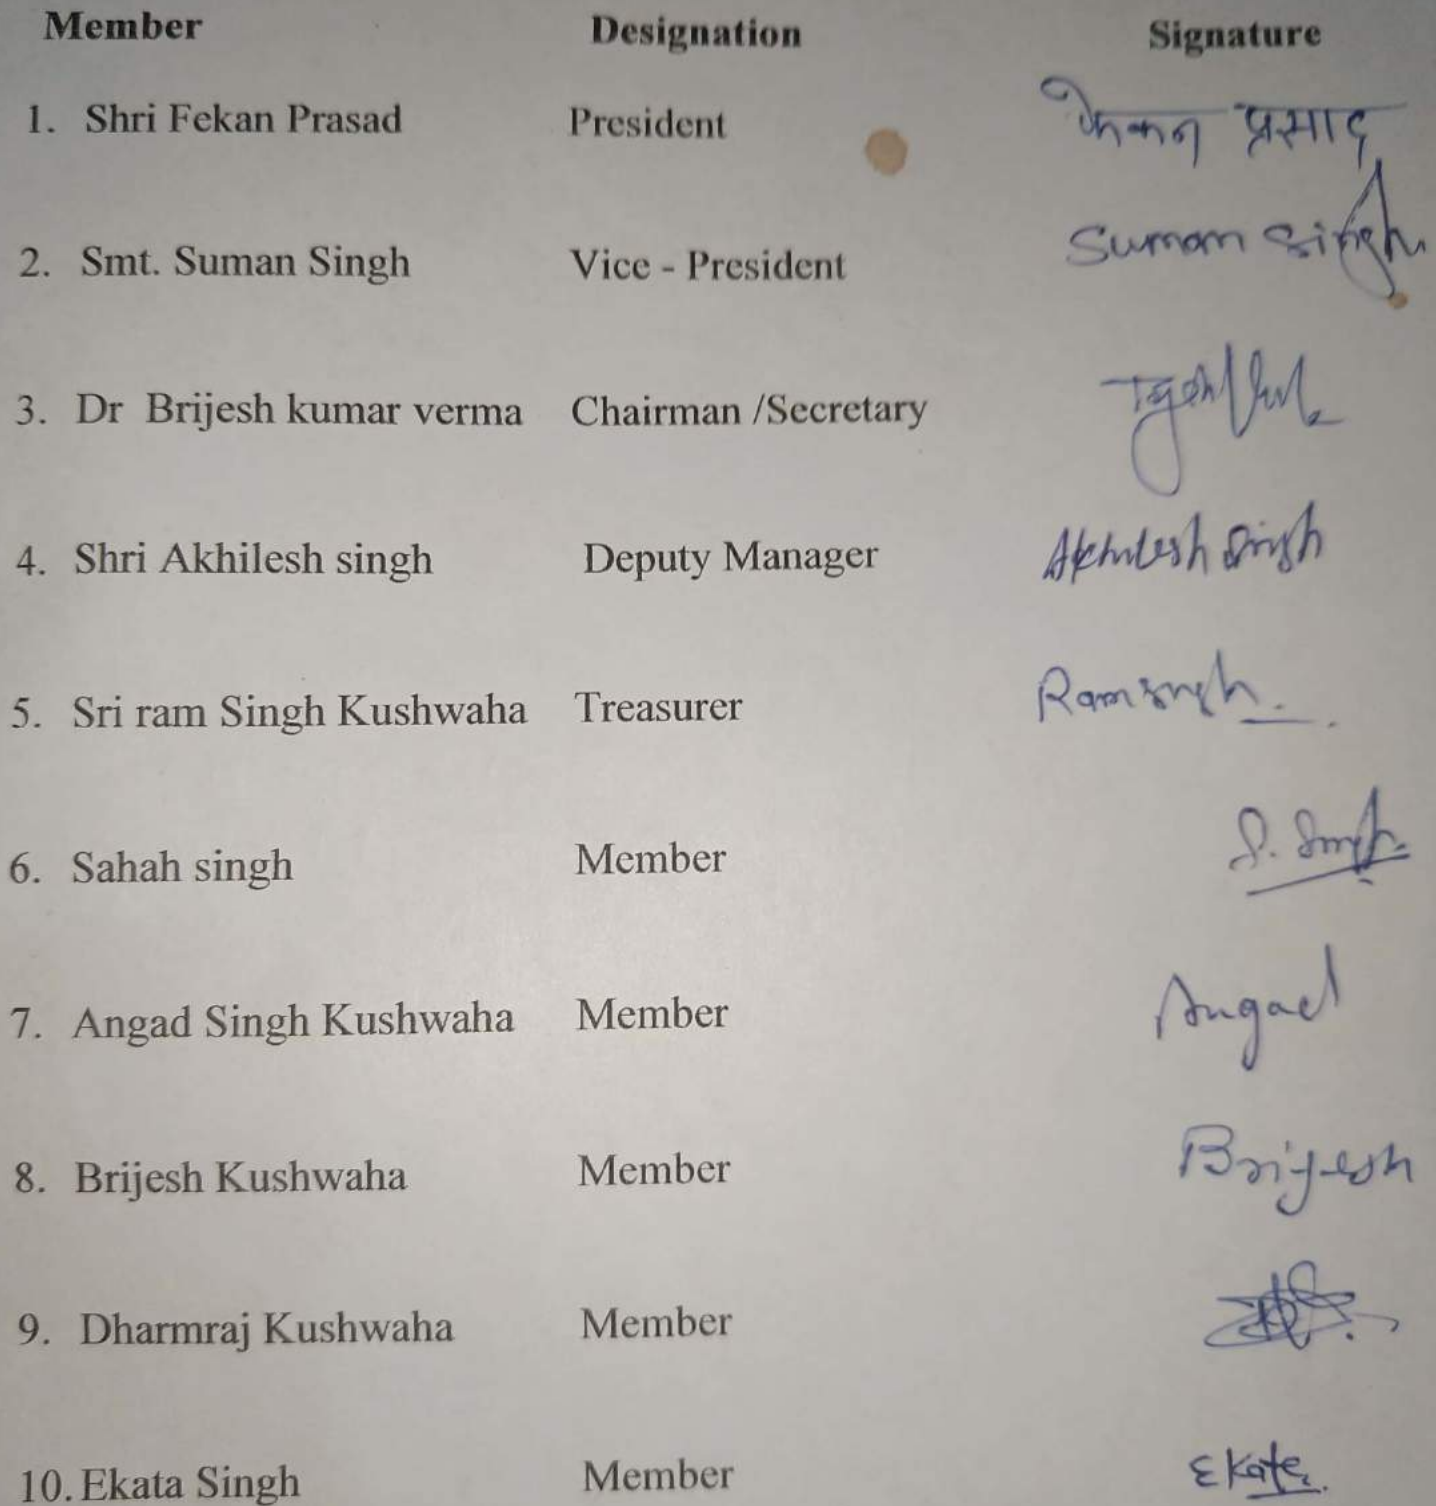 Member Designation Signature
1. Shri Fekan Prasad President फेकन प्रसाद
2. Smt. Suman Singh Vice - President Suman Singh
3. Dr Brijesh kumar verma Chairman /Secretary
4. Shri Akhilesh singh Deputy Manager Akhilesh Singh
5. Sri ram Singh Kushwaha Treasurer Ram Singh
6. Sahah singh Member S. Singh
7. Angad Singh Kushwaha Member Angad
8. Brijesh Kushwaha Member Brijesh
9. Dharmraj Kushwaha Member
10. Ekata Singh Member Ekata